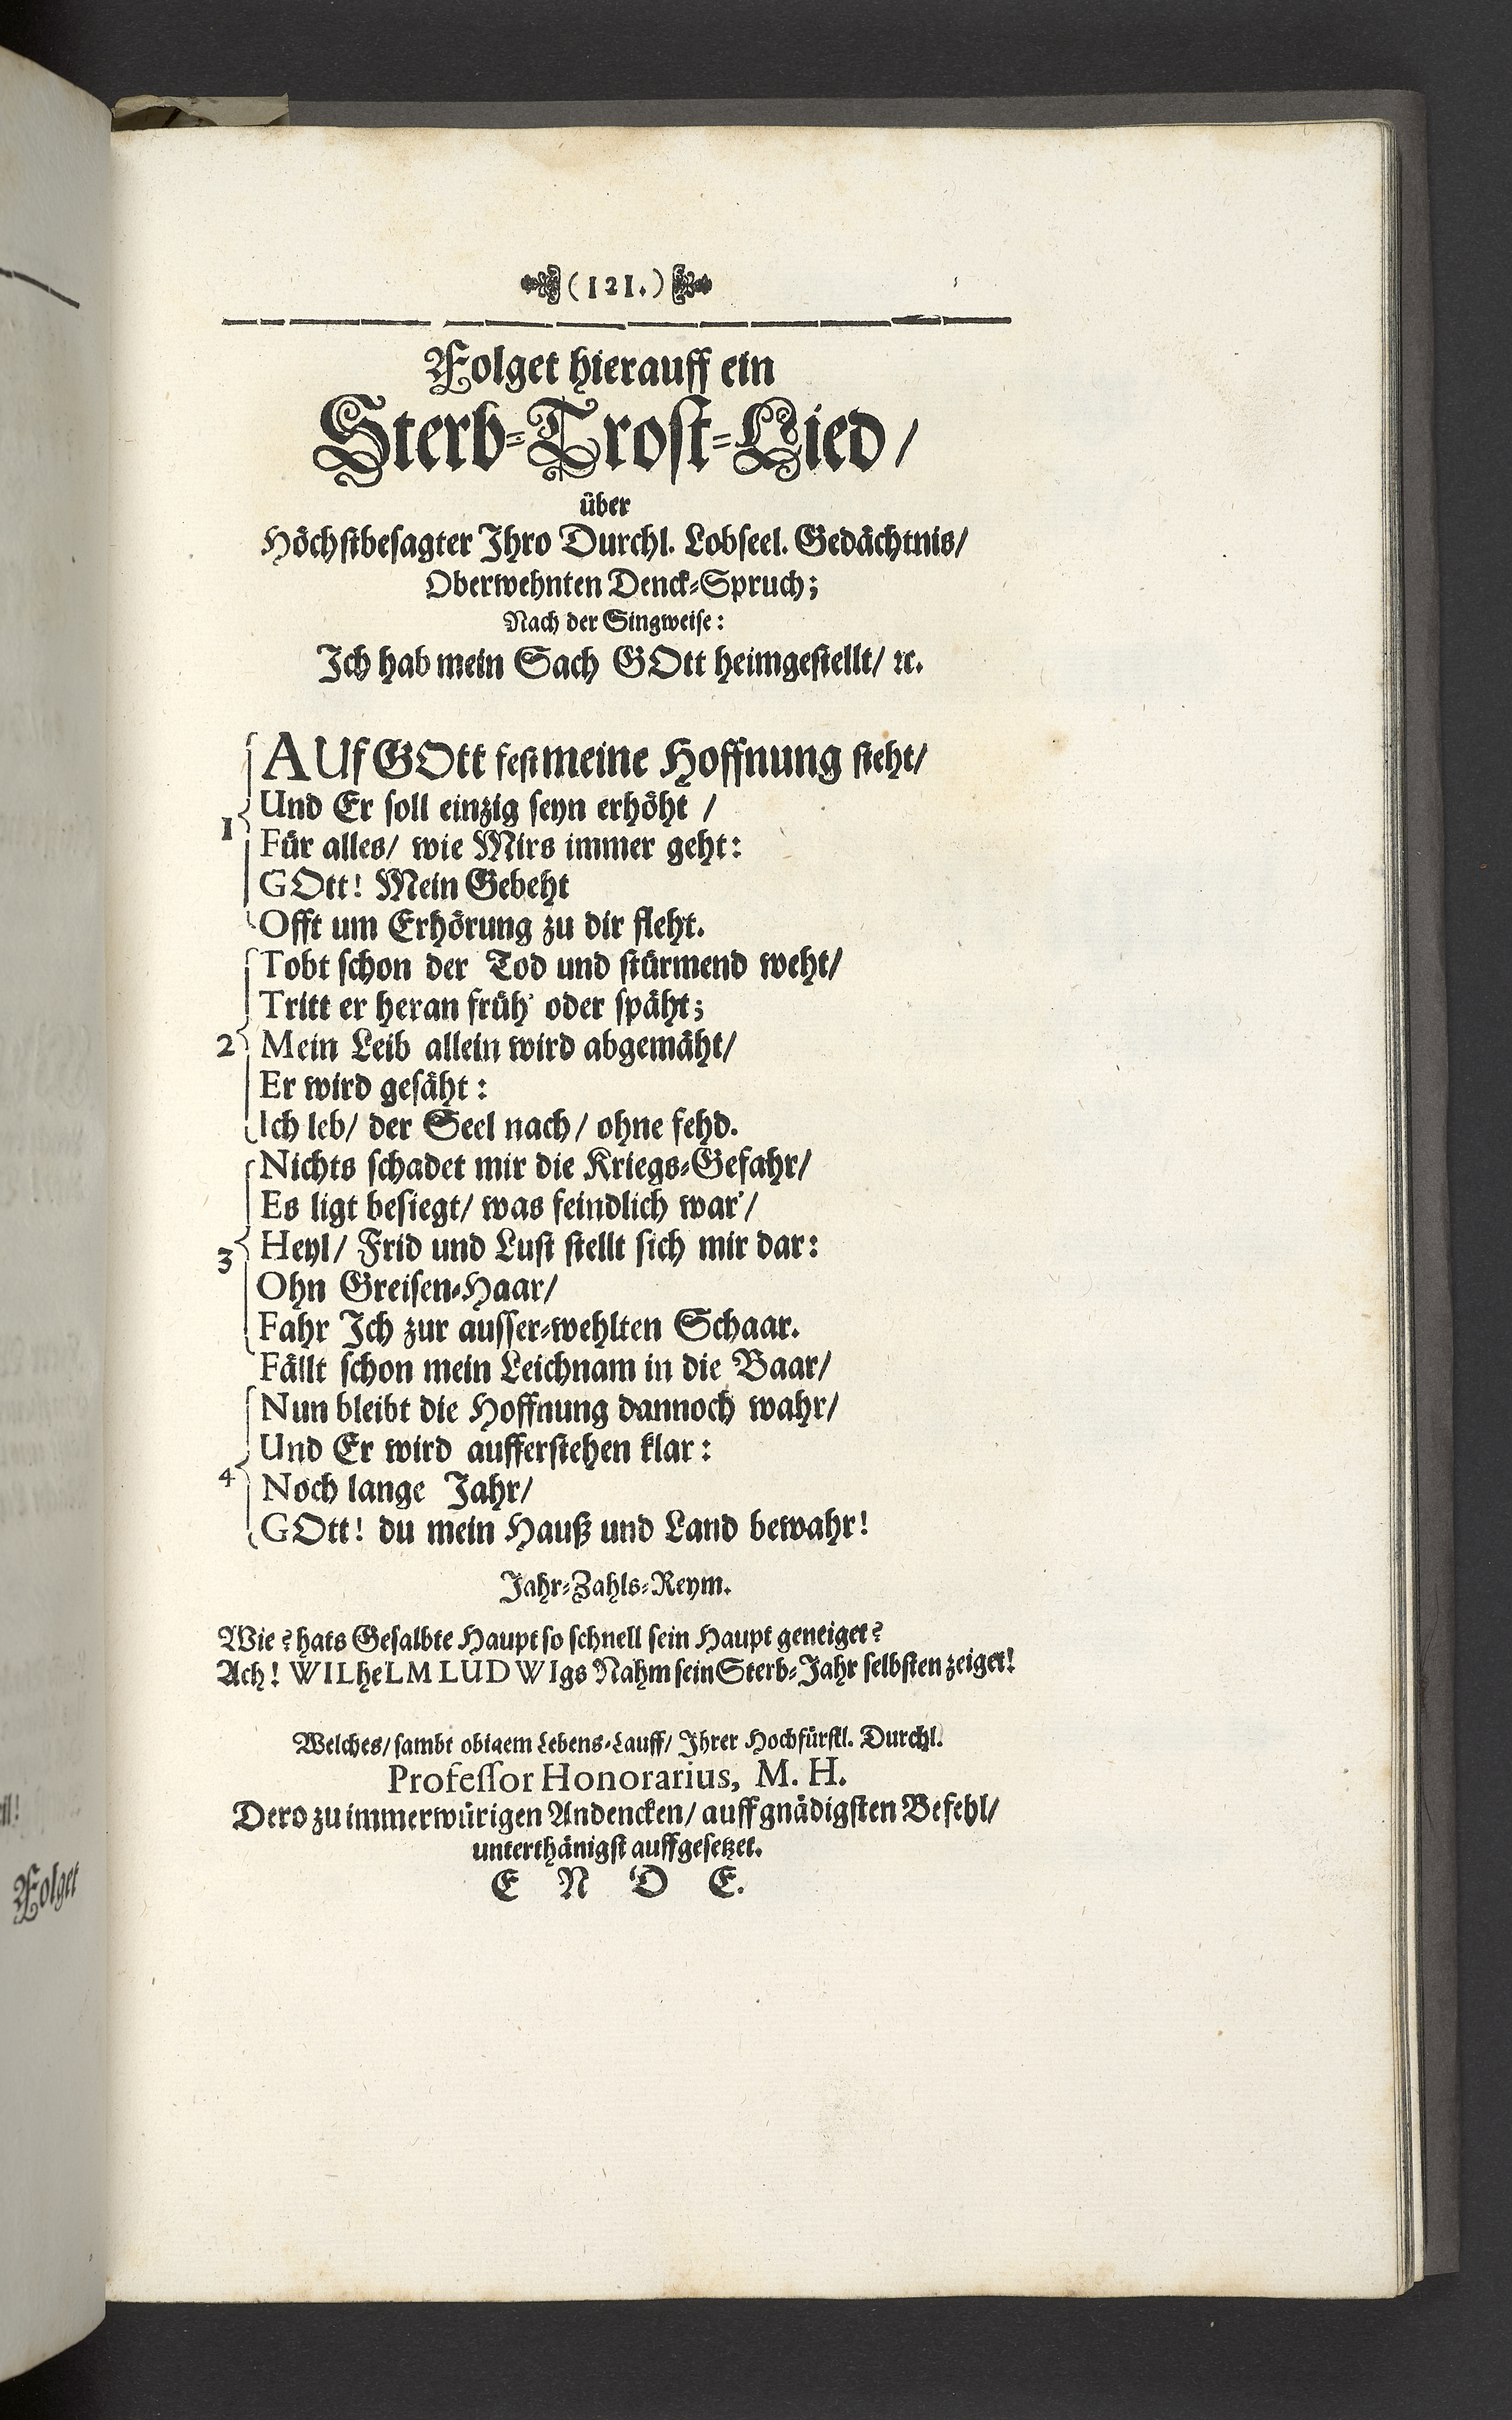 (121.)
Folget hierauff ein
Sterb-Trost-Lied/
über
Höchstbesagter Ihro Durchl. Lobseel. Gedächtnis/
Oberwehnten Denck-Spruch;
Nach der Singweise:
Ich hab mein Sach GOtt heimgestellt/ ꝛc.
1
AUf GOtt fest meine Hoffnung steht/
Und Er soll einzig seyn erhöht /
Für alles/ wie Mirs immer geht:
GOtt! Mein Gebeht
Offt um Erhörung zu dir fleht.
2
Tobt schon der Tod und stürmend weht/
Tritt er heran früh' oder späht;
Mein Leib allein wird abgemäht/
Er wird gesäht:
Ich leb/ der Seel nach/ ohne fehd.
3
Nichts schadet mir die Kriegs-Gefahr/
Es ligt besiegt/ was feindlich war'/
Heyl/ Frid und Lust stellt sich mir dar:
Ohn Greisen-Haar/
Fahr Ich zur ausser-wehlten Schaar.
4
Fällt schon mein Leichnam in die Baar/
Nun bleibt die Hoffnung dannoch wahr/
Und Er wird aufferstehen klar:
Noch lange Jahr/
GOtt! du mein Hauß und Land bewahr!
Jahr-Zahls-Reym.
Wie? hats Gesalbte Haupt so schnell sein Haupt geneiget?
Ach! WILheLM LUDWIgs Nahm sein Sterb-Jahr selbsten zeiget!
Welches/ sambt obigem Lebens-Lauff/ Ihrer Hochfürstl. Durchl.
Professor Honorarius, M. H.
Dero zu immerwürigen Andencken/ auff gnädigsten Befehl/
unterthänigst auffgesetzet.
E N D E.
Folget